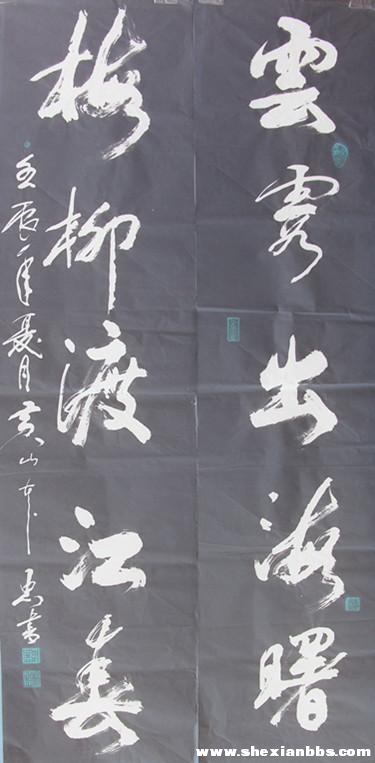 雲霞出海曙
梅柳渡江春
壬辰年夏月黄山書
www.shexianbbs.com